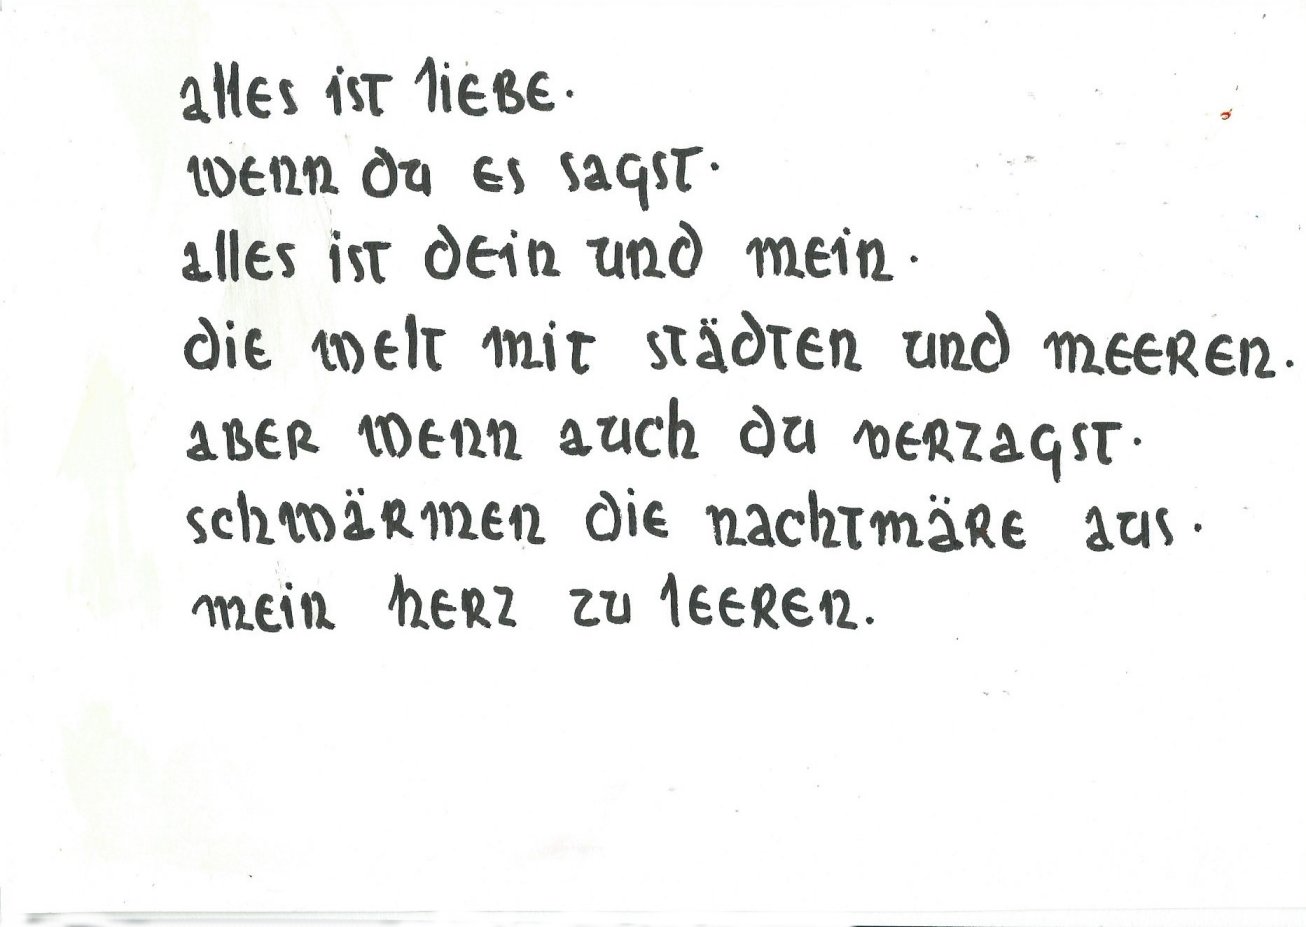 alles ist liebe.
wenn du es sagst.
alles ist dein und mein.
die welt mit städten und meeren.
aber wenn auch du verzagst.
schwärmen die nachtmäre aus.
mein herz zu leeren.